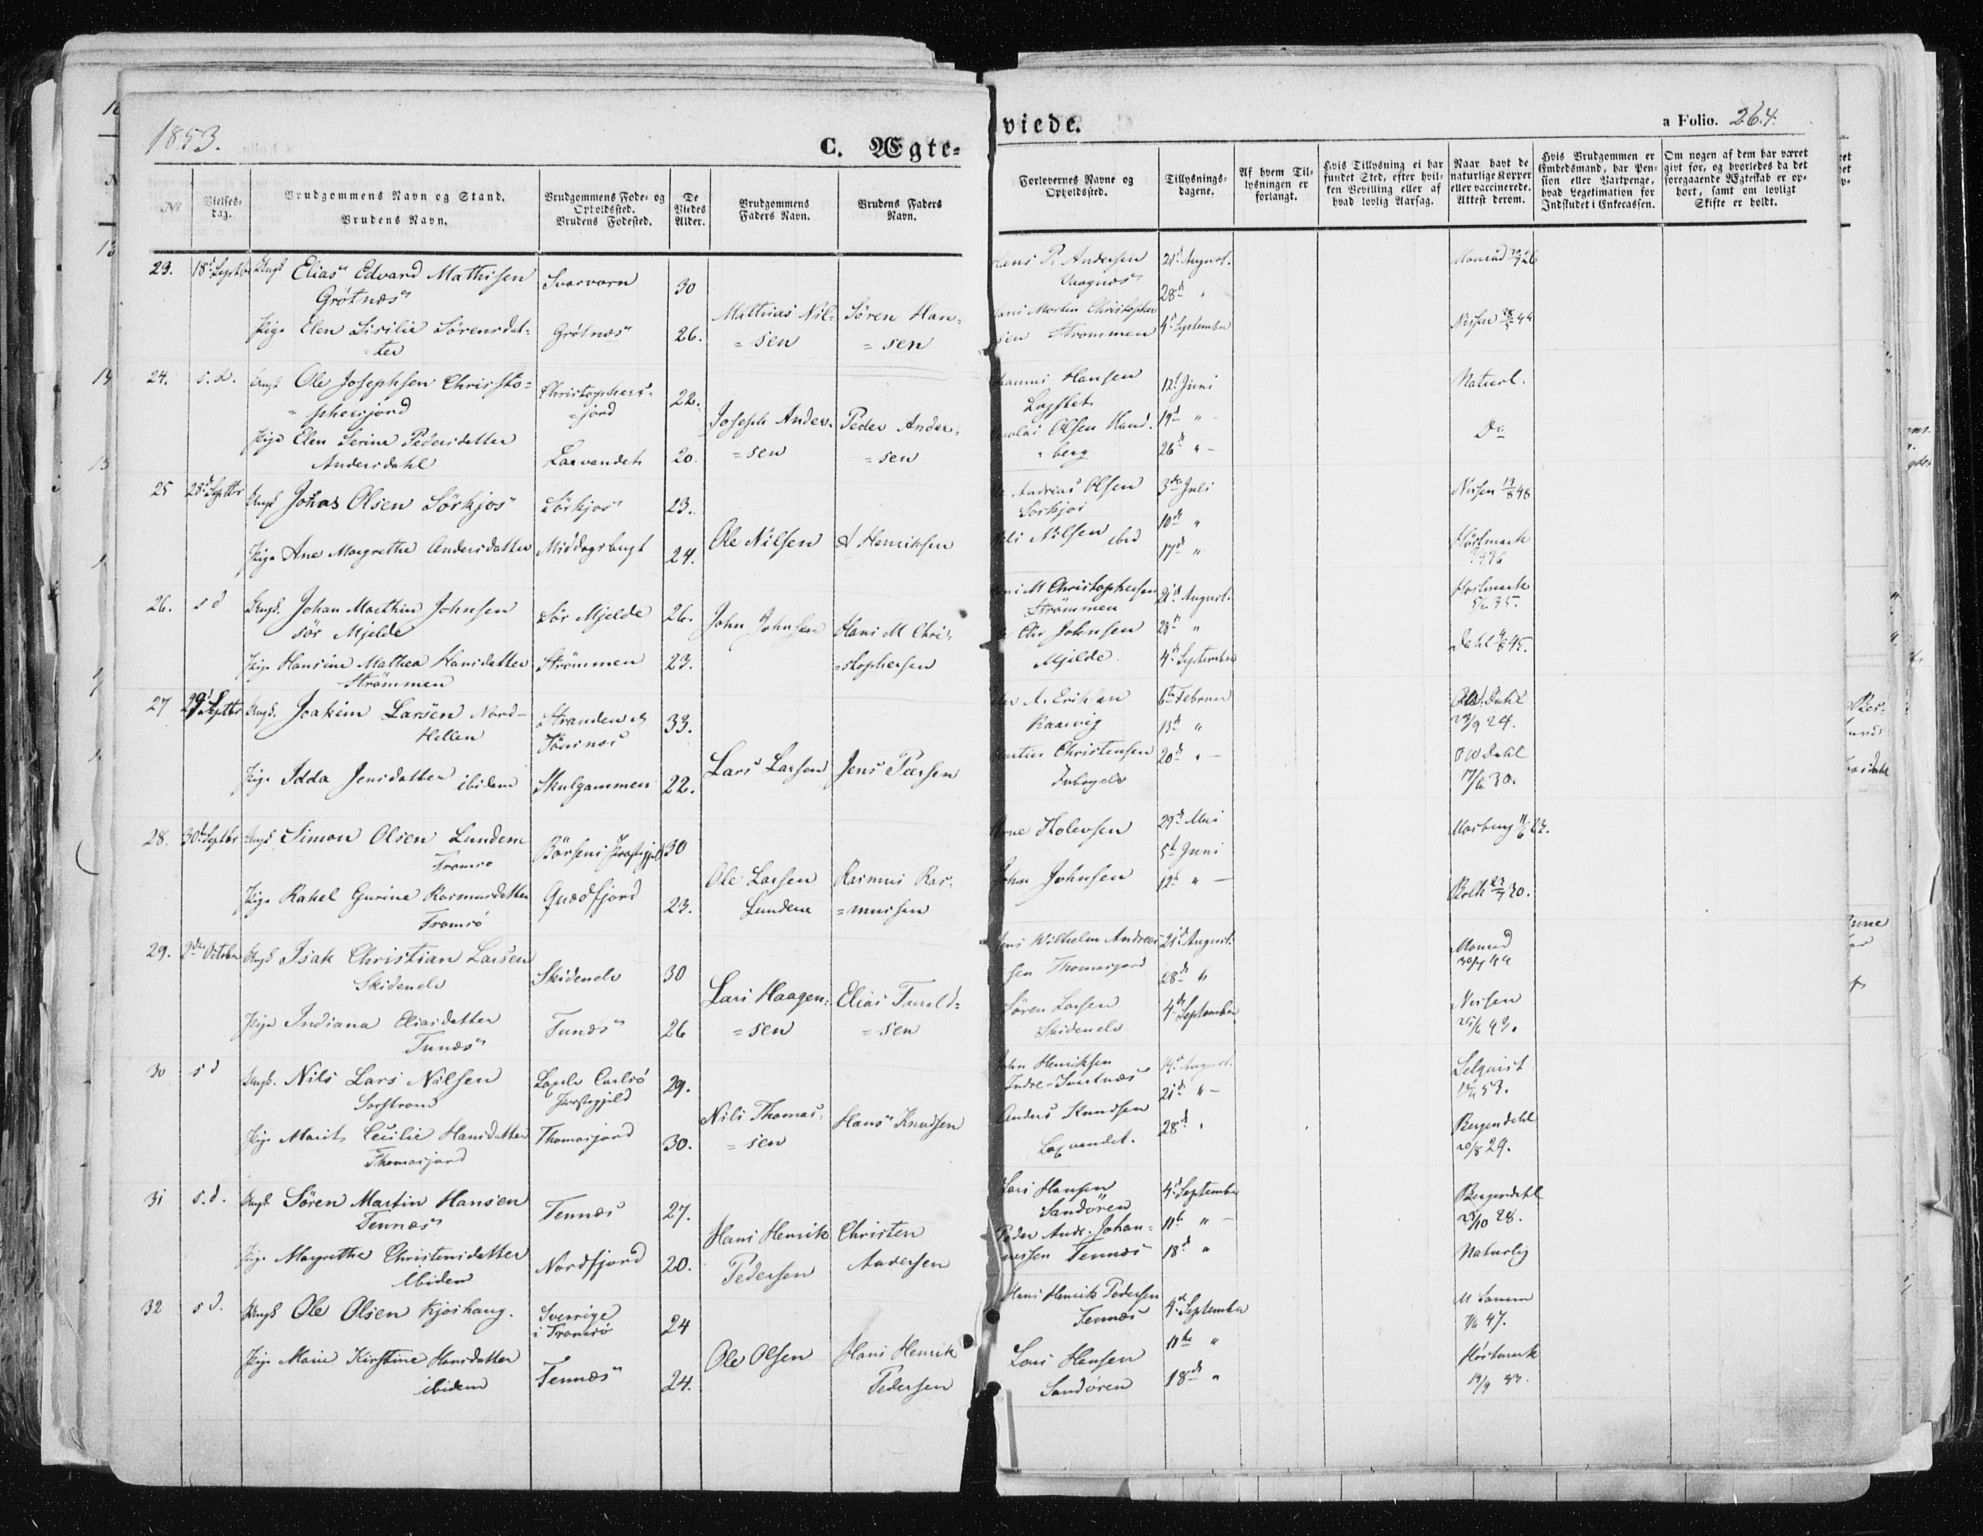 1853.
C. Ægte-
viede.
a Folio. 264.
No
Vielses-
dag.
Brudgommens Navn og Stand.
Brudens Navn.
Brudgommens Føde- og
Opholdssted.
Brudens Fødested.
De
Viedes
Alder.
Brudgommens
Faders Navn.
Brudens Faders
Navn.
Forlovernes Navne og
Opholdssted.
Tillysnings-
dagene.
Af hvem Til-
lysningen er
forlangt.
Hvis Tillysning ei har
fundet Sted, efter hvil-
ken Bevilling eller af
hvad lovlig Aarsag.
Naar havt de
naturlige Kopper
eller vaccinerede.
Attest derom.
Hvis Brudgommen er
Embedsmand, har Pen-
sion eller Vartpenge,
hvad Legetimation for
Indskudet i Enkecassen.
Om nogen af dem har været
givt før, og hvorledes da det
foregaaende Ægteskab er op-
hørt, samt om lovligt
Skifte er holdt.
23. 18d Septbr Ungk Elias Edvard Mathisen
Grøtnæs
Svarvarn 30
Pige Elen Sisilie Sørensdat-
ter
Grøtnæs 26.
Mathias Nil-
sen
Søren Han-
sen
Hans P. Andersen
Vaagnæs
Hans Morten Christopher
sen Strømmen
21d August.
28d "
4d September
Monrad
Nissen 44
24. s. d. Ungk Ole Josephsen Christo-
phersjord
Christophers-
jord
22.
Pige Elen Serine Pedersdatter
Andersdahl
Laxvandet 20.
Joseph Ander-
sen
Peder Ander-
sen
Johannes Hansen
Nicolai Olsen Kand-
berg
12d Juni
19d "
26d "
Naturl.
Do
25 28d Septbr Ungk Johas Olsen Sörkjos
Sörkjos 23.
Pige Ane Margrethe Andersdatter
Middagsbugt 24.
Ole Nilsen
A Henriksen
Andreas Olsen
Sorkjos
Nils Nilsen ibid
3die Juli
10d "
17d "
Nissen 48
Høstmark
26. s d Ungk. Johan Marthin Johnsen
sör Mjelde
Sör Mjelde 26.
Pige Hansine Mathea Hansdatter
Strømmen
Strømmen 23.
John Johnsen
Hans M Chri-
stophersen
Hans M Christophersen
Strömmen
Chr Johnsen
Mjelde
21d August.
28d "
4d September
Høstmark
5/6 35.
Dahl 45.
27 29d Septbr Ungk. Joakim Larsen Nord-
Hellen
Stranden
Tönsnæs
33.
Pige Idda Jensdatter ibidem
Skulgammen 22.
Lars Larsen
Jens Pedersen
Peder A. Eriksen
Kaarvig
Martin Christensen
6te Februar
13d "
20d "
Dahl
24.
O W Dahl
17/6 30.
28. 30d Septbr Ungk Simon Olsen Lundem
Tromsø
Börsens Præstegjeld 30
Pige Rahel Gurine Rasmusdatter
Tromsö
Quædfjord 23.
Ole Larsen
Lundem
Rasmus Ras-
mussen
Arne Holersen
John Johnsen
29d Mai
5d Juni
12d "
Bolth 30.
29. 2den October Ungk Isak Christian Larsen
Skidenelv
Skidenelv 30
Pige Indiana Eliasdatter
Tunæs
Tunæs 26
Lars Haagen-
sen
Elias Turold-
sen
Jens Wilhelm Andrea-
sen Thomasjord
Søren Larsen
Skidenelv
21d August.
28d "
4d September
Monrad
30/4 44
Nissen
43.
30 s d Ungk. Nils Lars Nilsen
Sorstrom
Carlsö
Præstegjeld
29.
Pige Marit Cecilie Hansdatter
Thomasjord
Thomasjord 30.
Nils Thomas-
sen
Hans Knudsen
John Henriksen
Indre
Anders Knudsen
Laxvandet.
14d August.
21d "
28d "
Lelquist
53.
Bergendahl
20/8 29.
31 s. d. Ungk Søren Martin Hansen
Tennæs
Tennæs 27.
Pige Margrethe Christensdatter
Ibidem
Nordfjord 20.
Hans Henrik
Pedersen
Christen
Andersen
Lars Hansen
Sandören
Peder Andr. Johan-
nessen Tennæs
4d September
11te "
18d "
Bergendahl
23/10 28.
Naturlig
32 s d. Ungk Ole Olsen Kjoshaug.
Sverrige
i Tromsø
24
Pige Marie Kirstine Hansdatter
ibidem
Tennæs 24.
Ole Olsen
Hans Henrik
Pedersen
Hans Henrik Pedersen
Tennæs
Lars Hansen
Sandören
4d September
11te "
18d "
47.
Høstmark
19/9 33.